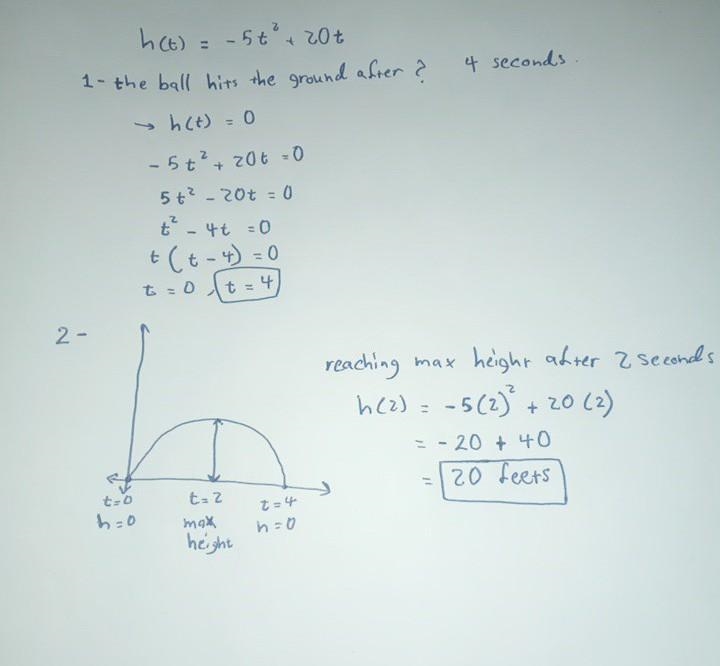 h(t) = -5t² + 20t
1- the ball hits the ground after? 4 seconds.
→ h(t) = 0
-5t² + 20t = 0
5t² - 20t = 0
t² - 4t = 0
t (t - 4) = 0
t = 0, t = 4
2-
reaching max height after 2 seconds
h(2) = -5(2)² + 20(2)
= -20 + 40
= 20 feets
t=0 t=2 t=4
h=0 max h=0
height